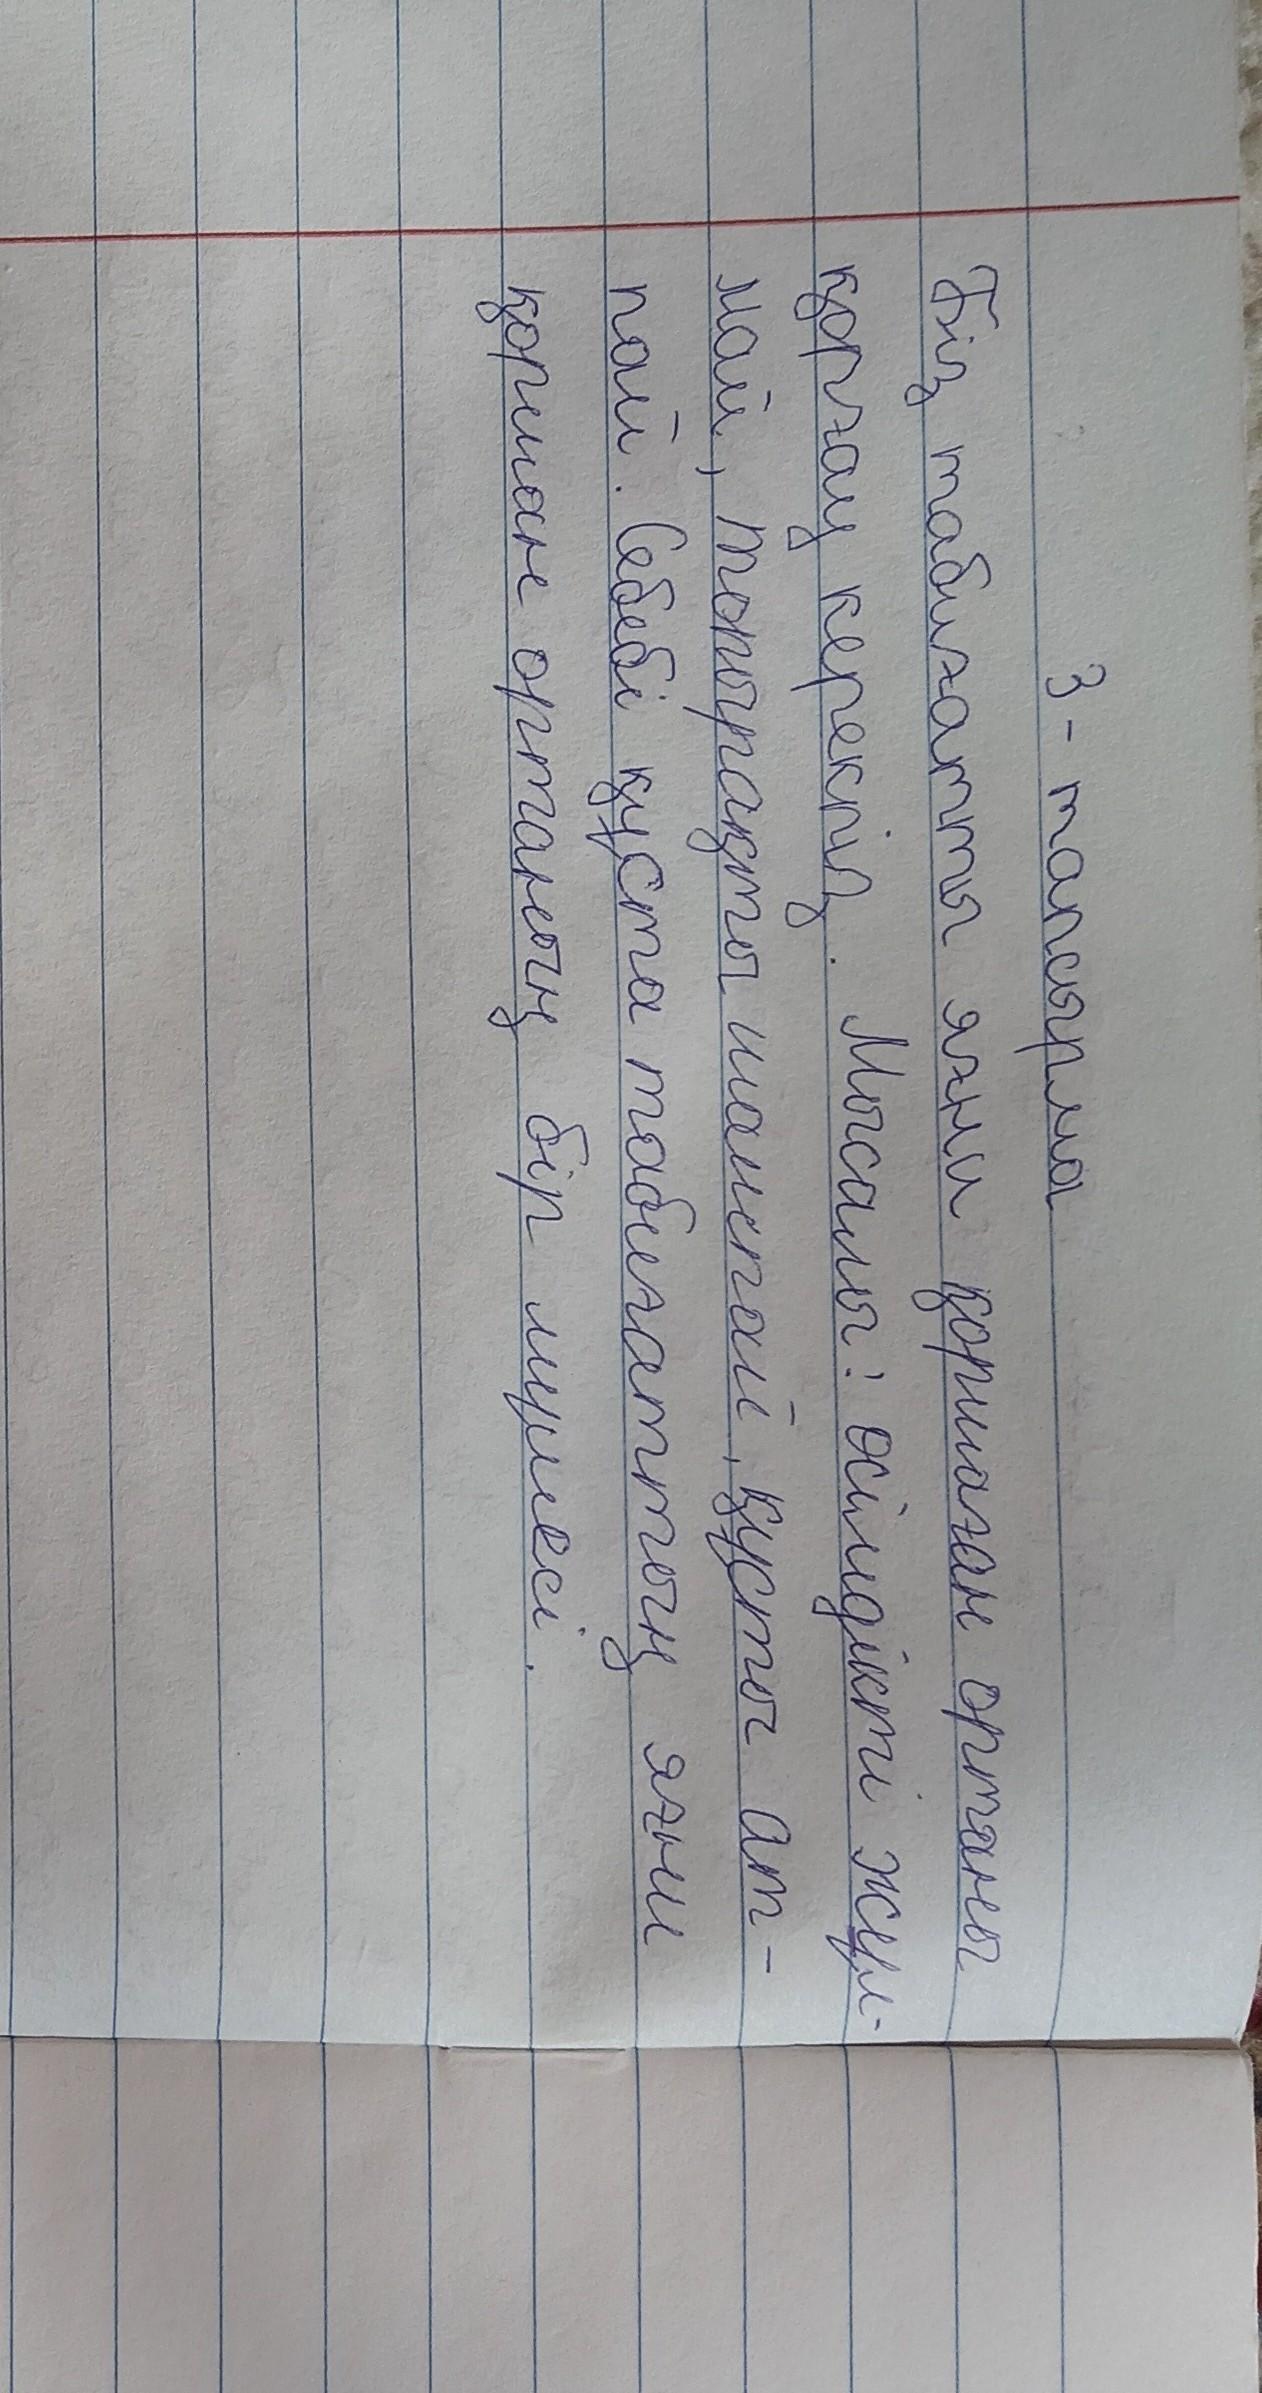 3-тапсырма
Біз табиғатты яғни қоршаған ортаны
қорғау керекпіз. Мысалы: өсілдікті жұл-
май, топырақты шаңетпай, құсты ат-
пай. Себебі құста табиғаттың яғни
қоршаған ортаның бір мүшесі.